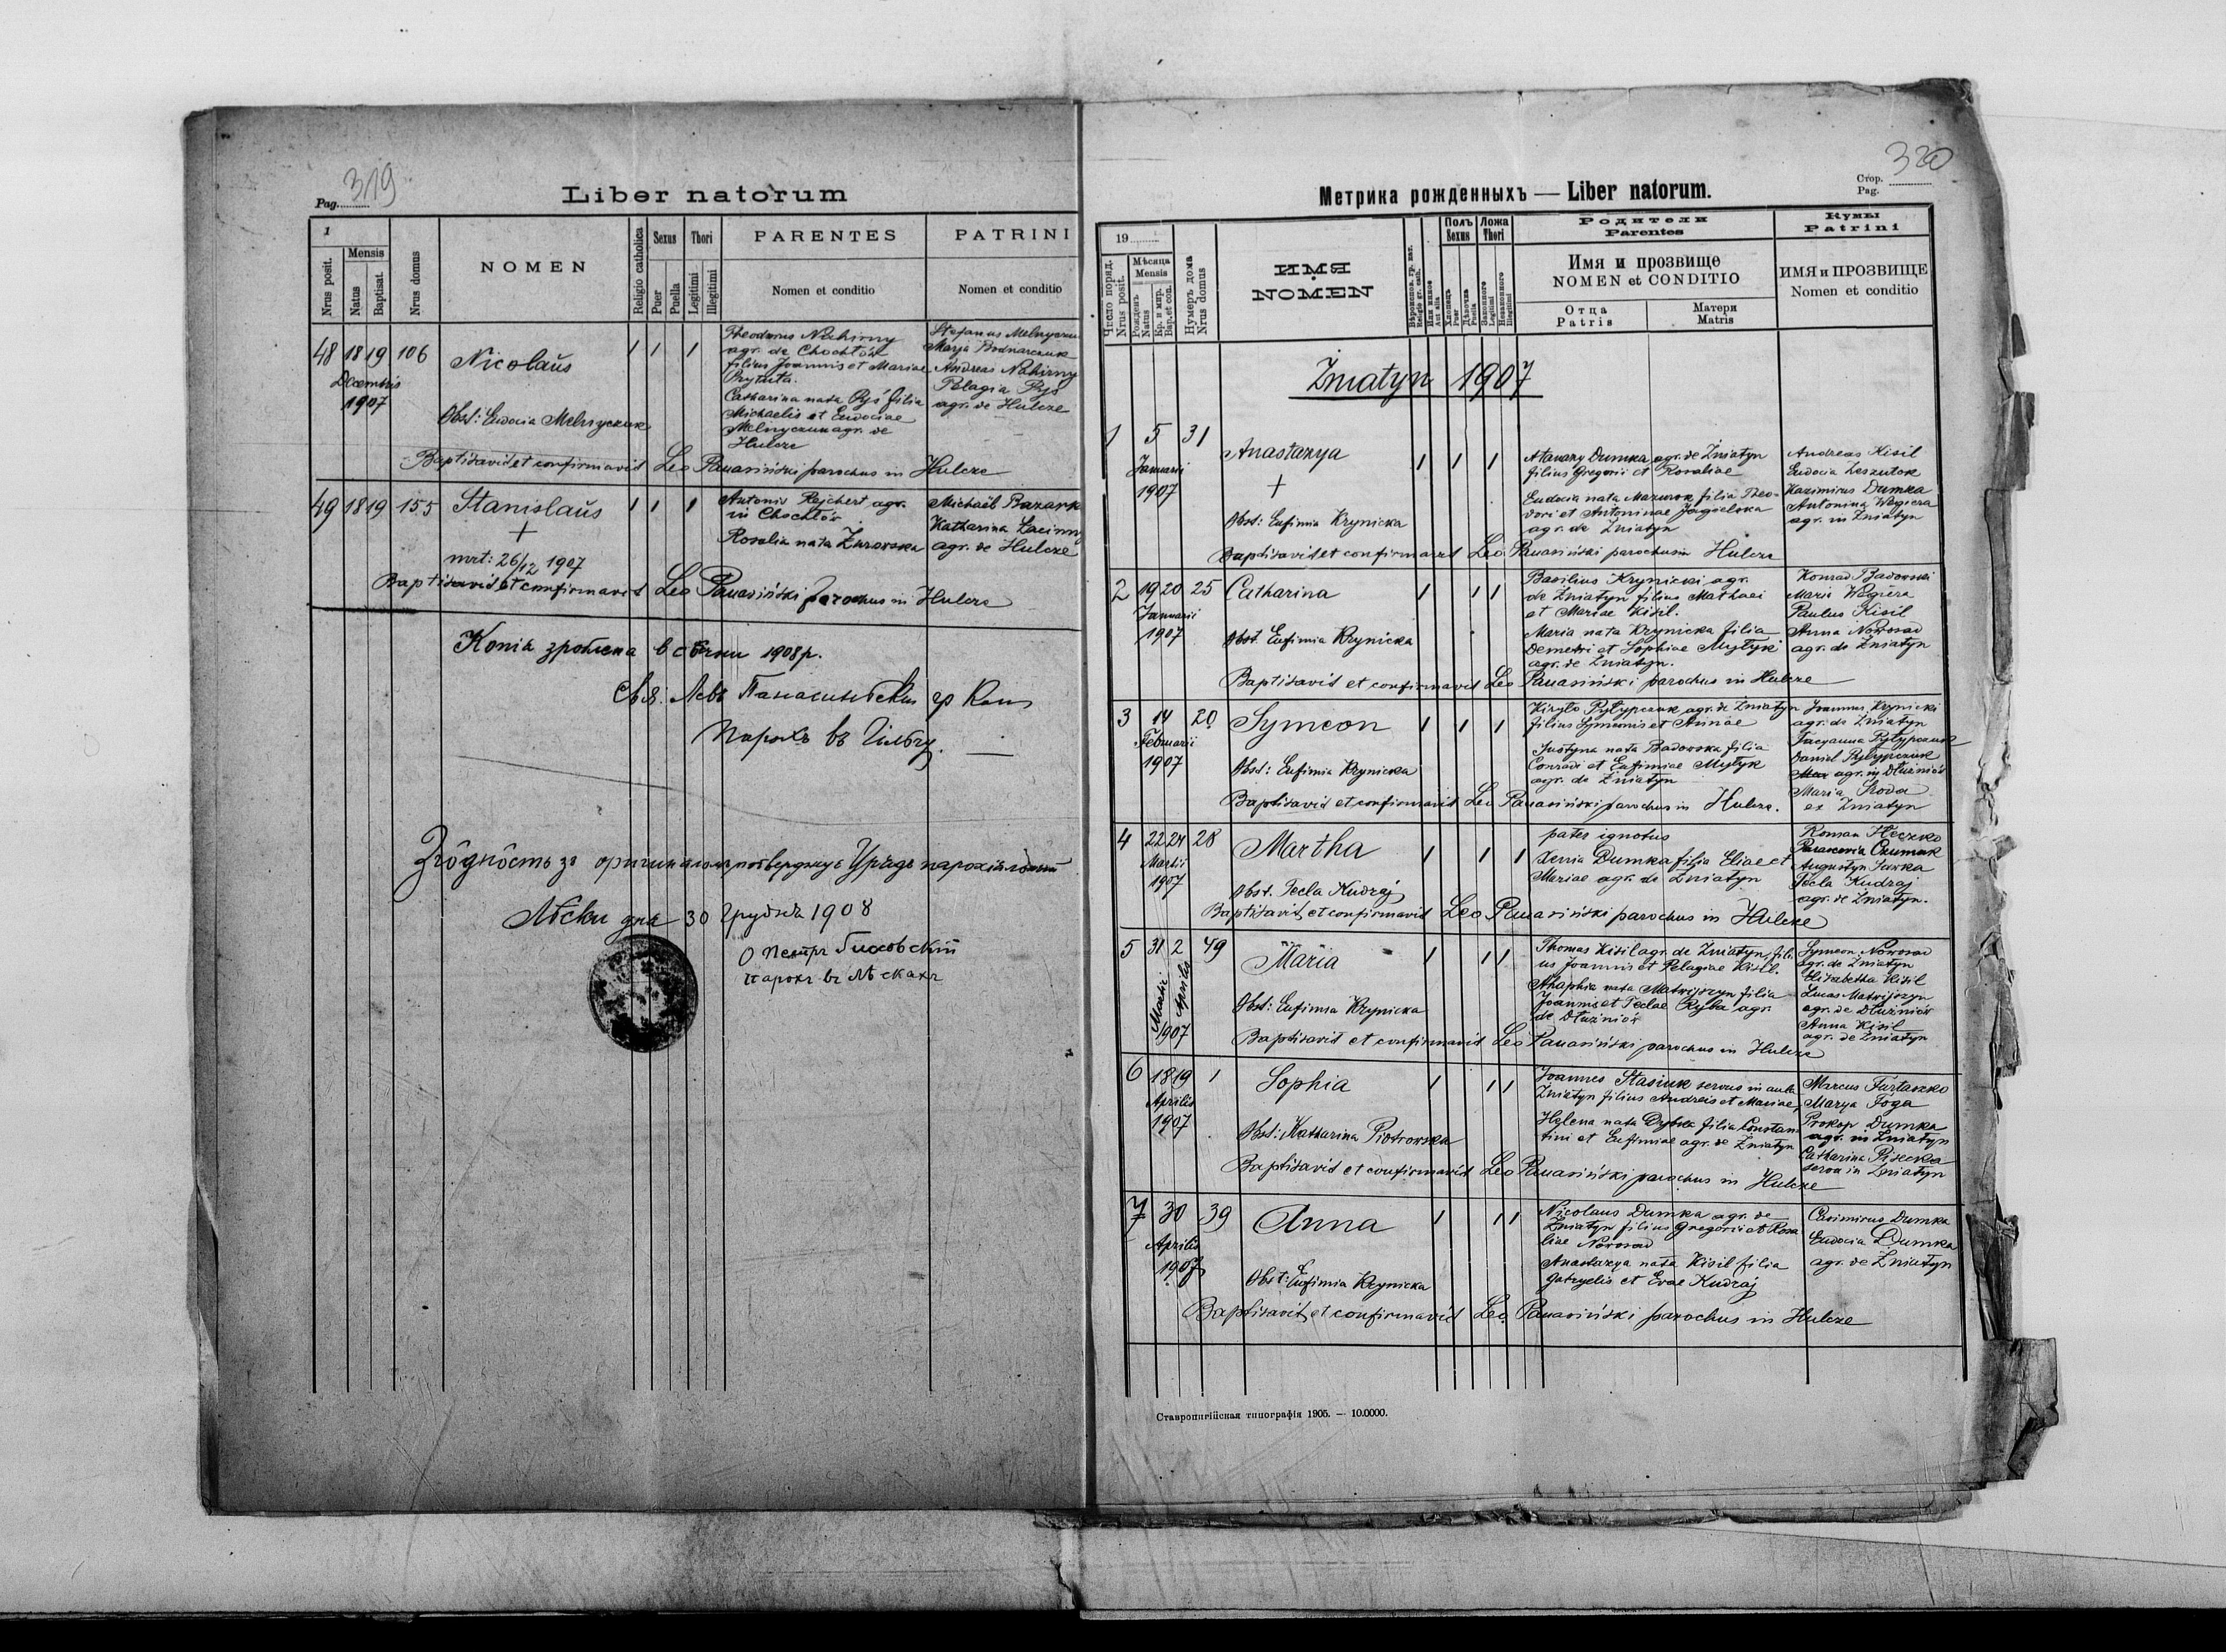 Pag. 319
Liber natorum
1
Nrus posit.
Mensis
Natus
Baptisat.
Nrus domus
NOMEN
Religio catholica
Sexus
Puer
Puella
Thori
Legitimi
Illegitimi
PARENTES
Nomen et conditio
PATRINI
Nomen et conditio
48 18 19 106
Decembris
1907
Nicolaŭs
Obst: Eudocia Melnyczuk
Theodorus Nahirny
agr. de Chochłów
filius Joannis et Mariae
Catharina nata Ryś filia
Michaelis et Eudociae
Melnyczuk agr. de
Hulcze
Stefanus Melnyczu
Marja Bodnarczuk
Andreas Nahirny
Pelagia Ryś
agr. de Hulcze
Baptisavit et confirmavit Leo Panasiński parochus in Hulcze
49 18 19 155
Stanislaŭs
+
mrt: 26/12 1907
Antonis Rejchert agr.
in Chochłów
Rosalia nata Żurowska
Michaël Bazark
Katharina
agr. de Hulcze
Baptisavit et confirmavit Leo Panasiński parochus in Hulcze
Копія зроблена в сѣчни 1908 р.
Свя. Левъ Панасиньскій гр кат
Парохъ въ Гільчу.
Згôднôсть зъ оригиналомъ потверджує Урядъ парохіяльний
Лѣски дня 30 Грудня 1908
О Петръ
парохъ въ Лѣскахъ
Стор.
Pag. 320
Метрика рожденныхъ — Liber natorum.
19
Число поряд.
Nrus posit.
Мѣсяца
Mensis
Рожденъ
Natus
Кр. и мир.
Bap. et con.
Нумеръ дома
Nrus domus
ИМЯ
NOMEN
Вѣроиспов. гр. кат.
Religio gr. cath.
Или инное
Aut alia
Полъ
Sexus
Хлопецъ
Puer
Дѣвочка
Puella
Ложа
Thori
Законного
Legitimi
Незаконного
Illegitimi
Родители
Parentes
Имя и прозвище
NOMEN et CONDITIO
Отца
Patris
Матери
Matris
Кумы
Patrini
ИМЯ и ПРОЗВИЩЕ
Nomen et conditio
Żniatyn 1907
1 5 31
Januarii
1907
Anastazya
+
Obst: Eufimia Krynicka
Atanazy Dumka agr. de Żniatyn
filius Gregorii et Rosaliae
Eudocia nata Mazurok filia Theo-
dori et Antoninae Jagielska
agr. de Żniatyn
Andreas Kisil
Eudocia Leszutok
Kazimirus Dumka
Antonina Węgiera
agr. in Żniatyn
Baptisavit et confirmavit Leo Panasiński parochus in Hulcze
2 19 20 25
Januarii
1907
Catharina
Obst. Eufimia Krynicka
Basilius Krynicki agr.
de Żniatyn filius Mathaei
et Mariae Kisil.
Maria nata Krynicka filia
Demetri et Sophiae Mytyk
agr. de Żniatyn.
Konrad Badowski
Maria Węgiera
Paulus Kisil
Anna Nowosad
agr. de Żniatyn
Baptisavit et confirmavit Leo Panasiński parochus in Hulcze
3 14 20
Februarii
1907
Symeon
Obst: Eufimia Krynicka
Kiryło Pyłypczuk agr. de Żniatyn
filius Symeonis et Annae
Justyna nata Badowska filia
Conradi et Eufimiae Mytyk
agr. de Żniatyn
Joannes Krynicki
agr. de Żniatyn
Tacyanna Pyłypczuk
Daniel Pyłypczuk
agr. in Dłużniów
Maria Środa
ex Żniatyn
Baptisavit et confirmavit Leo Panasiński parochus in Hulcze.
4 22 24 28
Martii
1907
Martha
Obst. Tecla Kudraj
pater ignotus
Xenia Dumka filia Eliae et
Mariae agr. de Żniatyn
Roman Heczko
Parascevia Czumak
Augustyn
Tecla Kudraj
agr. de Żniatyn.
Baptisavit et confirmavit Leo Panasiński parochus in Hulcze
5 31 2 49
Martii Aprilis
1907
Maria
Obst: Eufimia Krynicka
Thomas Kisil agr. de Żniatyn, fili-
us Joannis et Pelagiae Kisil.
Ahaphia nata Matwijczyn filia
Joannis et Teclae Ryba agr.
de Dłużniów
Symeon Nowosad
agr. de Żniatyn
Elisabetha Kisil
Lucas Matwijczyn
agr. de Dłużniów
Anna Kisil
agr. de Żniatyn
Baptisavit et confirmavit Leo Panasiński parochus in Hulcze
6 18 19 1
Aprilis
1907
Sophia
Obst: Katharina Piotrowska
Joannes Stasiuk servus in aula
Żniatyn filius Andreis et Mariae,
Helena nata Dybka filia Constan
tini et Eufimiae agr. de Żniatyn
Marcus Fartaszko
Marya Foga
Prokop Dumka
agr. in Żniatyn
Catharina Pisecka
serva in Żniatyn
Baptisavit et confirmavit Leo Panasiński parochus in Hulcze
7 30 39
Aprilis
1907
Anna
Obst: Eufimia Krynicka
Nicolaus Dumka agr. de
Żniatyn filius Gregorii et Rosa
liae Nowosad
Anastazya nata Kisil filia
Gabryelis et Evae Kudraj
Casimirus Dumka
Eudocia Dumka
agr. de Żniatyn
Baptisavit et confirmavit Leo Panasiński parochus in Hulcze
Ставропигійская типографія 1905. — 10.0000.